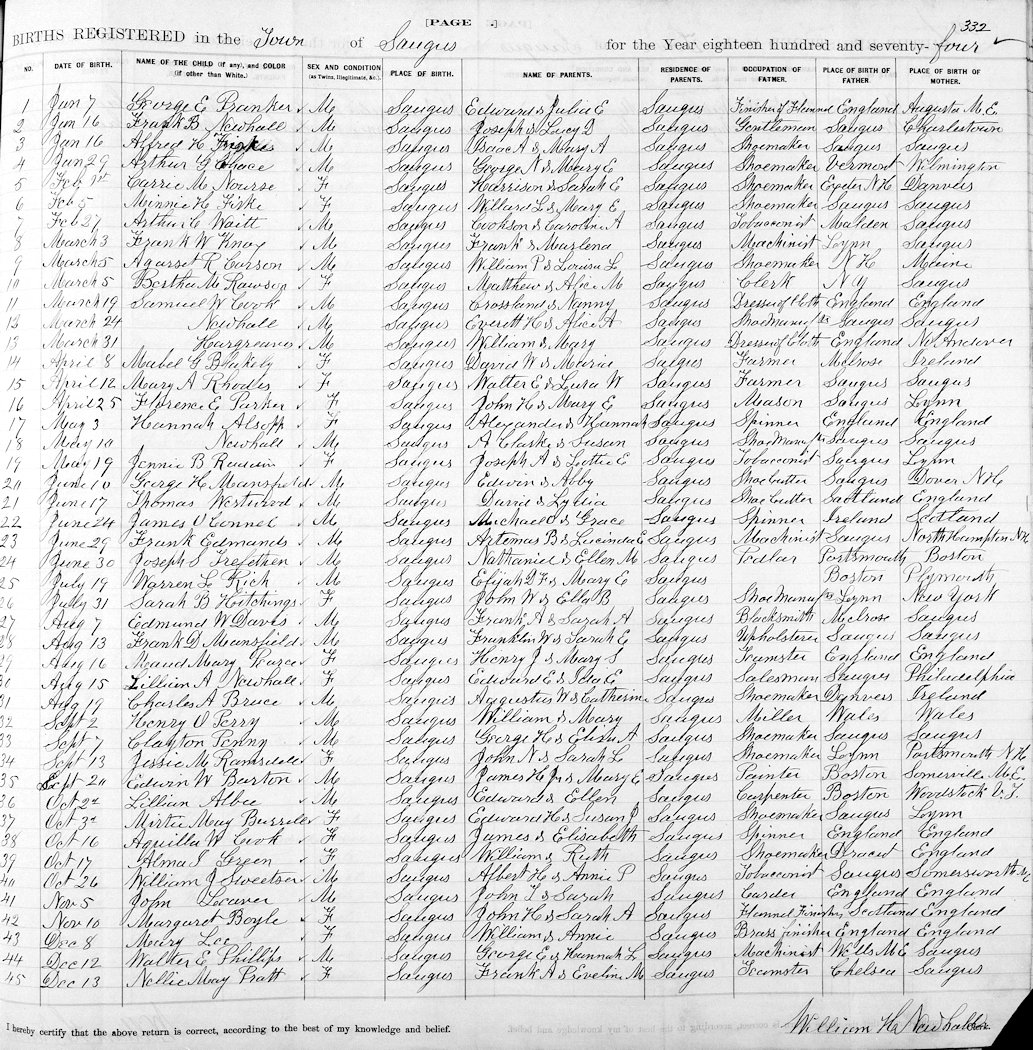 [PAGE .]
332
BIRTHS REGISTERED in the Town of Saugus for the Year eighteen hundred and seventy-four
NO. DATE OF BIRTH. NAME OF THE CHILD (if any), and COLOR (if other than White.) SEX AND CONDITION (as Twins, Illegitimate, &c.) PLACE OF BIRTH. NAME OF PARENTS. RESIDENCE OF PARENTS. OCCUPATION OF FATHER. PLACE OF BIRTH OF FATHER PLACE OF BIRTH OF MOTHER.
1 Jan 7 George E Pranker M Saugus Edward & Julia E Saugus Finisher of Flannel England Augusta M.E.
2 Jan 16 Frank B Newhall M Saugus Joseph & Lucy D Saugus Gentleman Saugus Charlestown
3 Jan 16 Alfred H Fiske M Saugus Isaac A & Mary A Saugus Shoemaker Saugus Saugus
4 Jan 29 Arthur G Chace M Saugus George N & Mary E Saugus Shoemaker Vermont Wilmington
5 Feb 1st Carrie M Nourse F Saugus Harrison & Sarah E Saugus Shoemaker Exeter N H Danvers
6 Feb 5 Minnie H Fiske F Saugus Willard L & Mary E Saugus Shoemaker Saugus Saugus
7 Feb 27 Arthur C Waitt M Saugus Cookson & Caroline A Saugus Tobacconist Malden Saugus
8 March 3 Frank W Knox M Saugus Frank & Marlena Saugus Machinist Lynn Saugus
9 March 5 R Carson M Saugus William P & Louisa L Saugus Shoemaker N H Maine
10 March 5 Bertha M Rawson F Saugus Matthew & Alice M Saugus Clerk N Y Saugus
11 March 19 Samuel W Cook M Saugus Crossland & Nanny Saugus Dresser of Cloth England England
12 March 24 Newhall M Saugus Everett H & Alice A Saugus Shoe Manufr Saugus Saugus
13 March 31 Hargreaves M Saugus William & Mary Saugus Dresser of Cloth England No. Andover
14 April 8 Mabel G Blakely F Saugus David W & Maria Saugus Farmer Melrose Ireland
15 April 12 Mary A Rhodes F Saugus Walter E & Lura W Saugus Farmer Saugus Saugus
16 April 25 Florence E Parker F Saugus John H & Mary E Saugus Mason Saugus Lynn
17 May 3 Hannah Alsoph F Saugus Alexander & Hannah Saugus Spinner England England
18 May 10 Newhall M Saugus A Clark & Susan Saugus Shoe Manufr Saugus Saugus
19 May 19 Jennie B Raddin F Saugus Joseph A & Lottie E Saugus Tobacconist Saugus Lynn
20 June 10 George H Mansfield M Saugus Edwin & Abby Saugus Shoe Cutter Saugus Dover N H
21 June 17 Thomas M Saugus David & Lydia Saugus Shoe Cutter Scotland England
22 June 24 James O'Connel M Saugus Michael & Grace Saugus Spinner Ireland Scotland
23 June 29 Frank Edmands M Saugus Artemas B & Lucinda E Saugus Machinist Saugus North Hampton N H
24 June 30 Joseph S Trefethen M Saugus Nathaniel & Ellen M Saugus Pedlar Portsmouth Boston
25 July 19 Warren L Rich M Saugus Elijah D F & Mary E Saugus Boston Plymouth
26 July 31 Sarah B Hitchings F Saugus John W & Ella B Saugus Shoe Manufr Lynn New York
27 Aug 7 Edmund W Davis M Saugus Frank A & Sarah A Saugus Blacksmith Melrose Saugus
28 Aug 13 Frank D Mansfield M Saugus Franklin W & Sarah E Saugus Upholsterer Saugus Saugus
29 Aug 16 Maud Mary Pearce F Saugus Henry J & Mary S Saugus Teamster England England
31 Aug 15 Lillian A Newhall F Saugus Edward E & Ida E Saugus Salesman Saugus Philadelphia
31 Aug 19 Charles A Bruce M Saugus Augustus W & Catherine Saugus Shoemaker Danvers Ireland
32 Sept 2 Henry O Perry M Saugus William & Mary Saugus Miller Wales Wales
33 Sept 7 Clayton Penny M Saugus George H & Eliza A Saugus Shoemaker Saugus Saugus
34 Sept 13 Jessie M Ramsdell F Saugus John N & Sarah L Saugus Shoemaker Lynn Portsmouth N H
35 Sept 20 Edwin W Barton M Saugus James H Jr & Mary E Saugus Painter Boston Somerville M.E.
36 Oct 2d Lillian Albee M Saugus Edward & Ellen Saugus Carpenter Boston Woodstock V.T.
37 Oct 3d Mirtie May Burrill F Saugus Edward H & Susan J Saugus Shoemaker Saugus Lynn
38 Oct 16 Aquilla W Cook F Saugus James & Elisabeth Saugus Spinner England England
39 Oct 17 Alma S Green F Saugus William & Ruth Saugus Shoemaker Dracut England
40 Oct 26 William J Sweetser M Saugus Albert H & Annie P Saugus Tobacconist Saugus Somersworth
41 Nov 5 John M Saugus John T & Sarah Saugus Carder England England
42 Nov 10 Margaret Boyle F Saugus John H & Sarah A Saugus Flannel Finisher Scotland England
43 Dec 8 Mary Lee F Saugus William & Annie Saugus Brass finisher England England
44 Dec 12 Walter E Phillips M Saugus George E & Hannah L Saugus Machinist Wells M E Saugus
45 Dec 13 Nellie May Pratt F Saugus Frank A & Eveline M Saugus Teamster Chelsea Saugus
I hereby certify that the above return is correct, according to the best of my knowledge and belief.
William H. Newhall